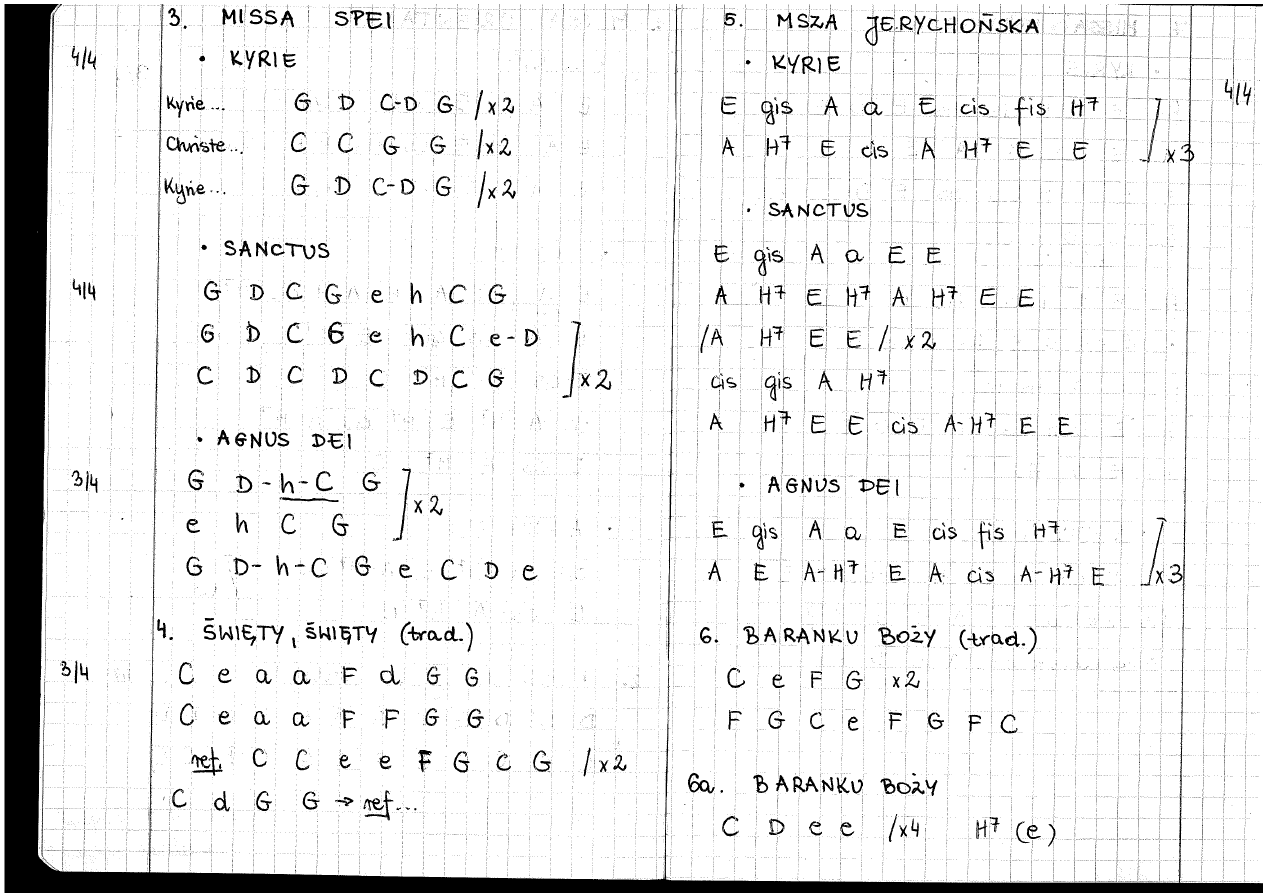 3. MISSA SPEI
4/4 • KYRIE
Kyrie... G D C-D G /x2
Christe... C C G G /x2
Kyrie... G D C-D G /x2
• SANCTUS
4/4 G D C G e h C G
G D C G e h C e-D
C D C D C D C G ]x2
• AGNUS DEI
3/4 G D-h-C G
e h C G ]x2
G D-h-C G e C D e
4. ŚWIĘTY, ŚWIĘTY (trad.)
3/4 C e a a F d G G
C e a a F F G G
ref. C C e e F G C G /x2
C d G G → ref...
5. MSZA JERYCHOŃSKA
• KYRIE
E gis A a E cis fis H7 4/4
A H7 E cis A H7 E E ]x3
• SANCTUS
E gis A a E E
A H7 E H7 A H7 E E
/A H7 E E / x2
cis gis A H7
A H7 E E cis A-H7 E E
• AGNUS DEI
E gis A a E cis fis H7
A E A-H7 E A cis A-H7 E ]x3
6. BARANKU BOŻY (trad.)
C e F G x2
F G C e F G F C
6a. BARANKU BOŻY
C D e e /x4 H7 (e)